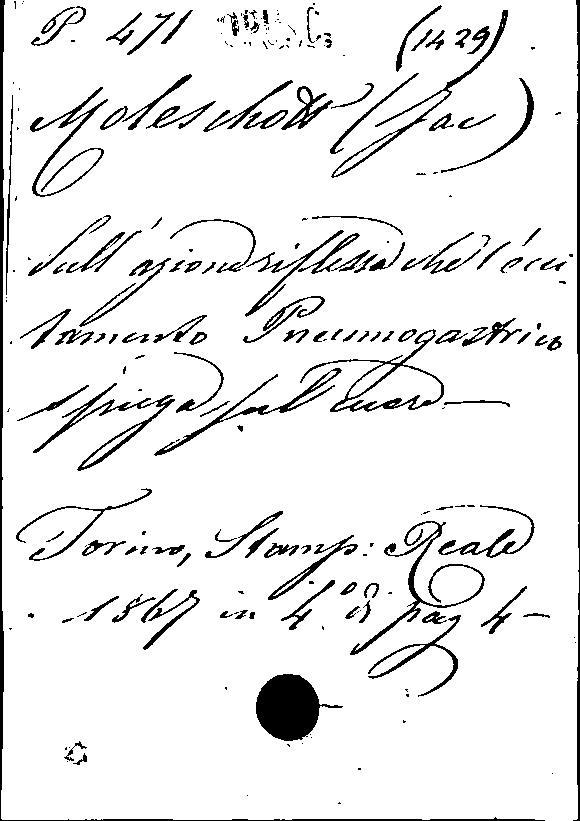 P. 471 (1429)
Moleschott (Jac)
Sull' azione riflessa che l'ecci-
tamento Pneumogastrico
spiega sul cuore —
Torino, Stamp: Reale
1867 in 4.º di pag 4 —